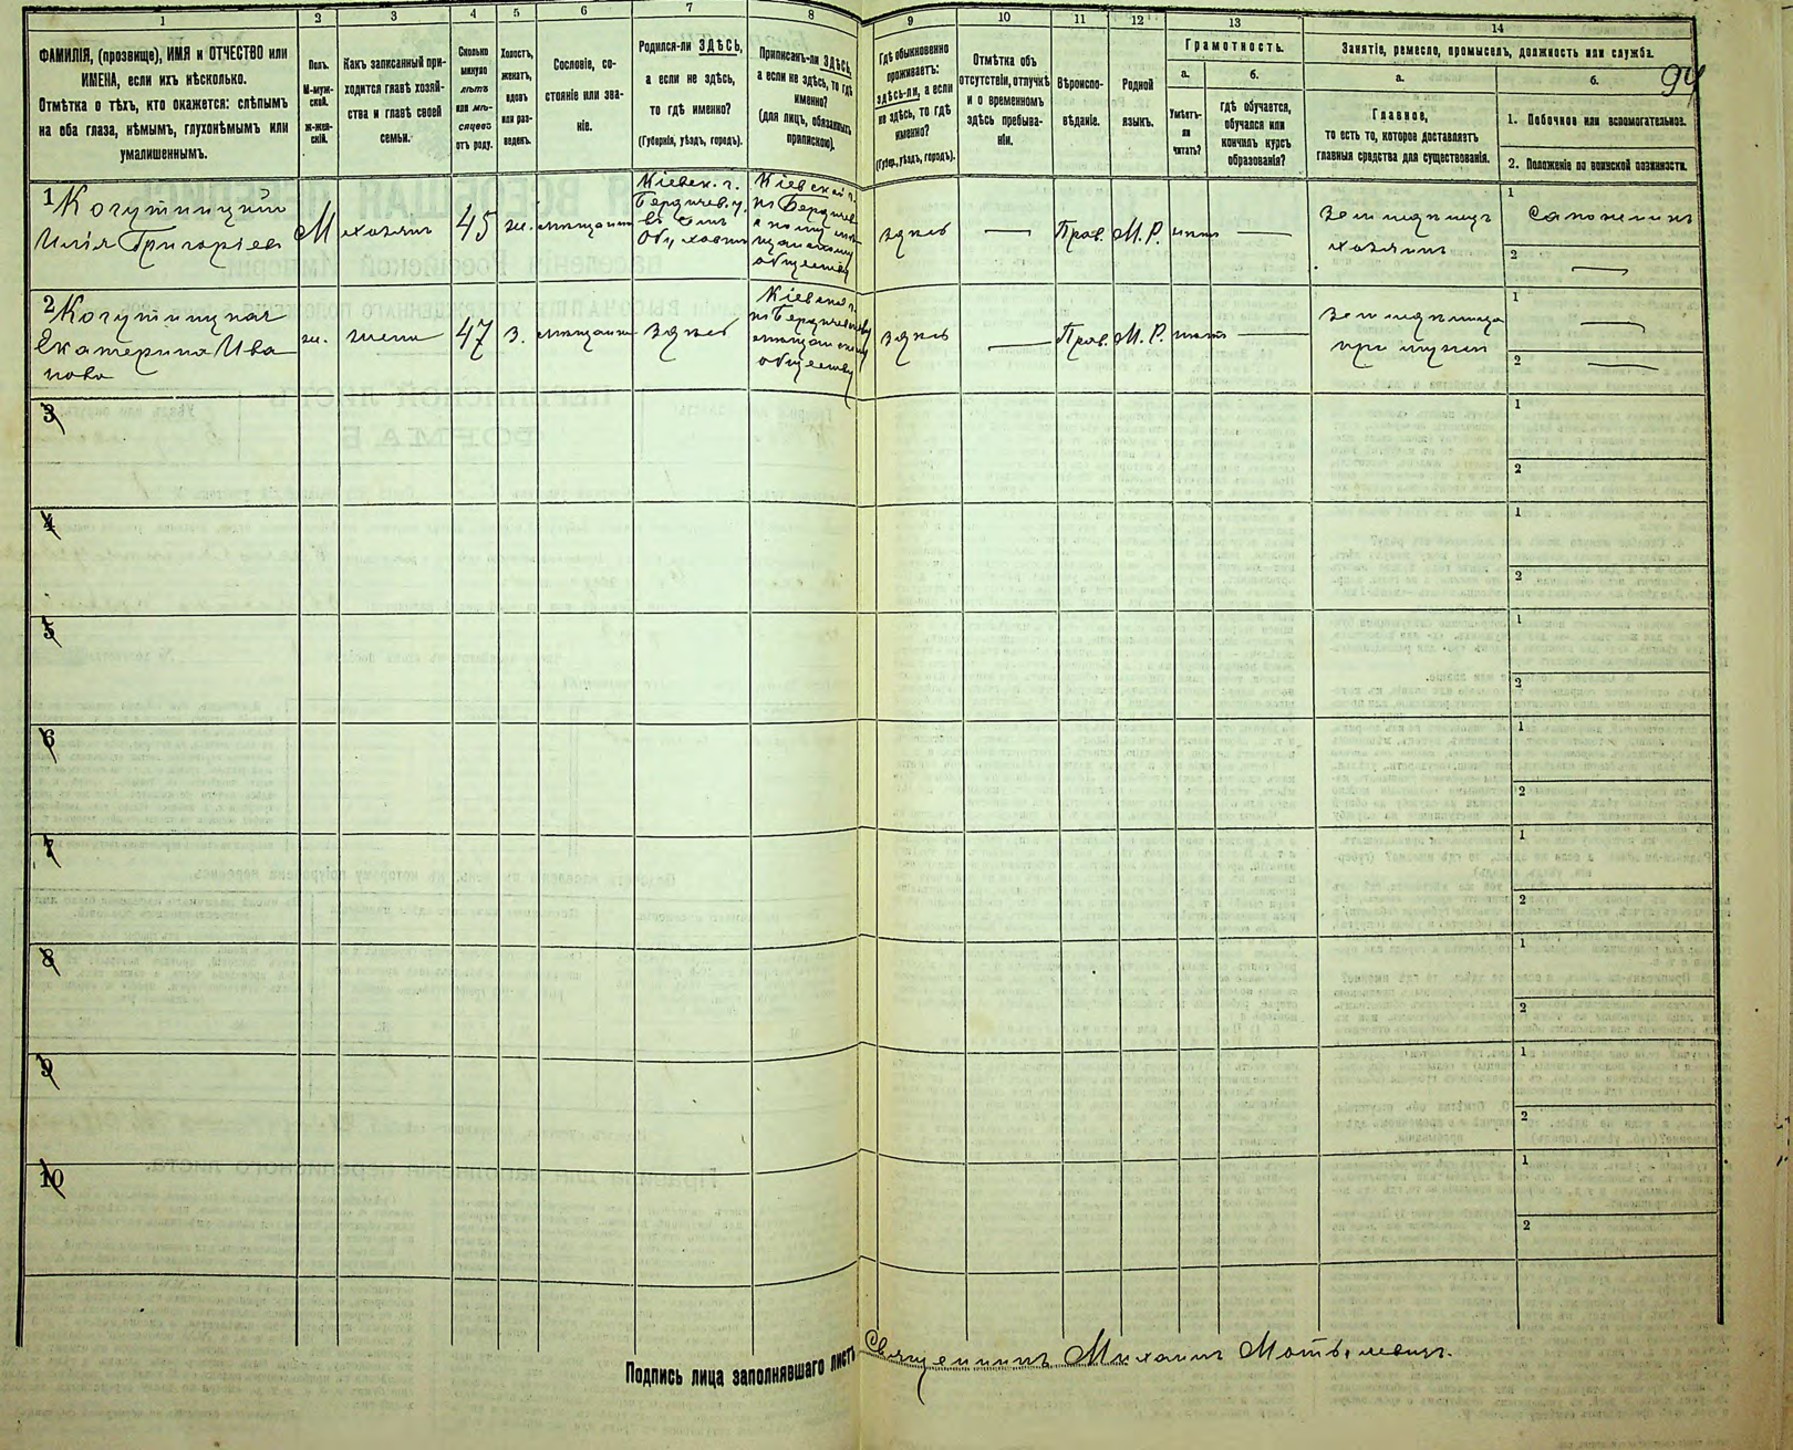 1
2
3
4
5
6
7
8
9
10
11
12
13
14
ФАМИЛІЯ, (прозвище), ИМЯ и ОТЧЕСТВО или
ИМЕНА, если ихъ нѣсколько.
Отмѣтка о тѣхъ, кто окажется: слѣпымъ
на оба глаза, нѣмымъ, глухонѣмымъ или
умалишеннымъ.
Полъ.
М-муж-
ской.
ж-жен-
скій.
Какъ записанный при-
ходится главѣ хозяй-
ства и главѣ своей
семьи.
Сколько
минуло
лѣтъ
или мѣ-
сяцевъ
отъ роду.
Холостъ,
женатъ,
вдовъ
или раз-
веденъ.
Сословіе, со-
стояніе или зва-
ніе.
Родился-ли ЗДѢСЬ,
а если не здѣсь,
то гдѣ именно?
(Губернія, уѣздъ, городъ).
Приписанъ-ли ЗДѢСЬ,
а если не здѣсь, то гдѣ
именно?
(для лицъ, обязанныхъ
припискою).
Гдѣ обыкновенно
проживаетъ:
здѣсь-ли, а если
не здѣсь, то гдѣ
именно?
(Губер., уѣздъ, городъ).
Отмѣтка объ
отсутствіи, отлучкѣ
и о временномъ
здѣсь пребыва-
ніи.
Вѣроиспо-
вѣданіе.
Родной
языкъ.
Грамотность.
а.
б.
Умѣетъ-
ли
читать?
гдѣ обучается,
обучался или
кончилъ курсъ
образованія?
Занятіе, ремесло, промыселъ, должность или служба.
а.
б.
94
Главное,
то есть то, которое доставляетъ
главныя средства для существованія.
1. Побочное или вспомогательное.
2. Положеніе по воинской повинности.
1 Когутницкій
Илія Григоріев
М
хозяинъ
45
ж.
мѣщанин
Кіевск. г.
Бердичев. у.
въ
Кіевской г.
къ Бердичев
скому мѣ
щанскому
обществу
здѣсь
—
Прав.
М. Р.
нѣтъ
—
Земледѣлецъ
хозяинъ
1
Сапожникъ
2
—
2 Когутницкая
Екатерина Ива
нова
ж.
жена
47
З.
мѣщанка
здѣсь
Кіевской г.
къ Бердичевскому
мѣщанскому
обществу
здѣсь
—
Прав.
М. Р.
нѣтъ
—
Земледѣлица
при мужѣ
1
—
2
—
3
1
2
4
1
2
5
1
2
6
1
2
7
1
2
8
1
2
9
1
2
10
1
2
Подпись лица заполнявшаго листъ Священникъ Михаилъ